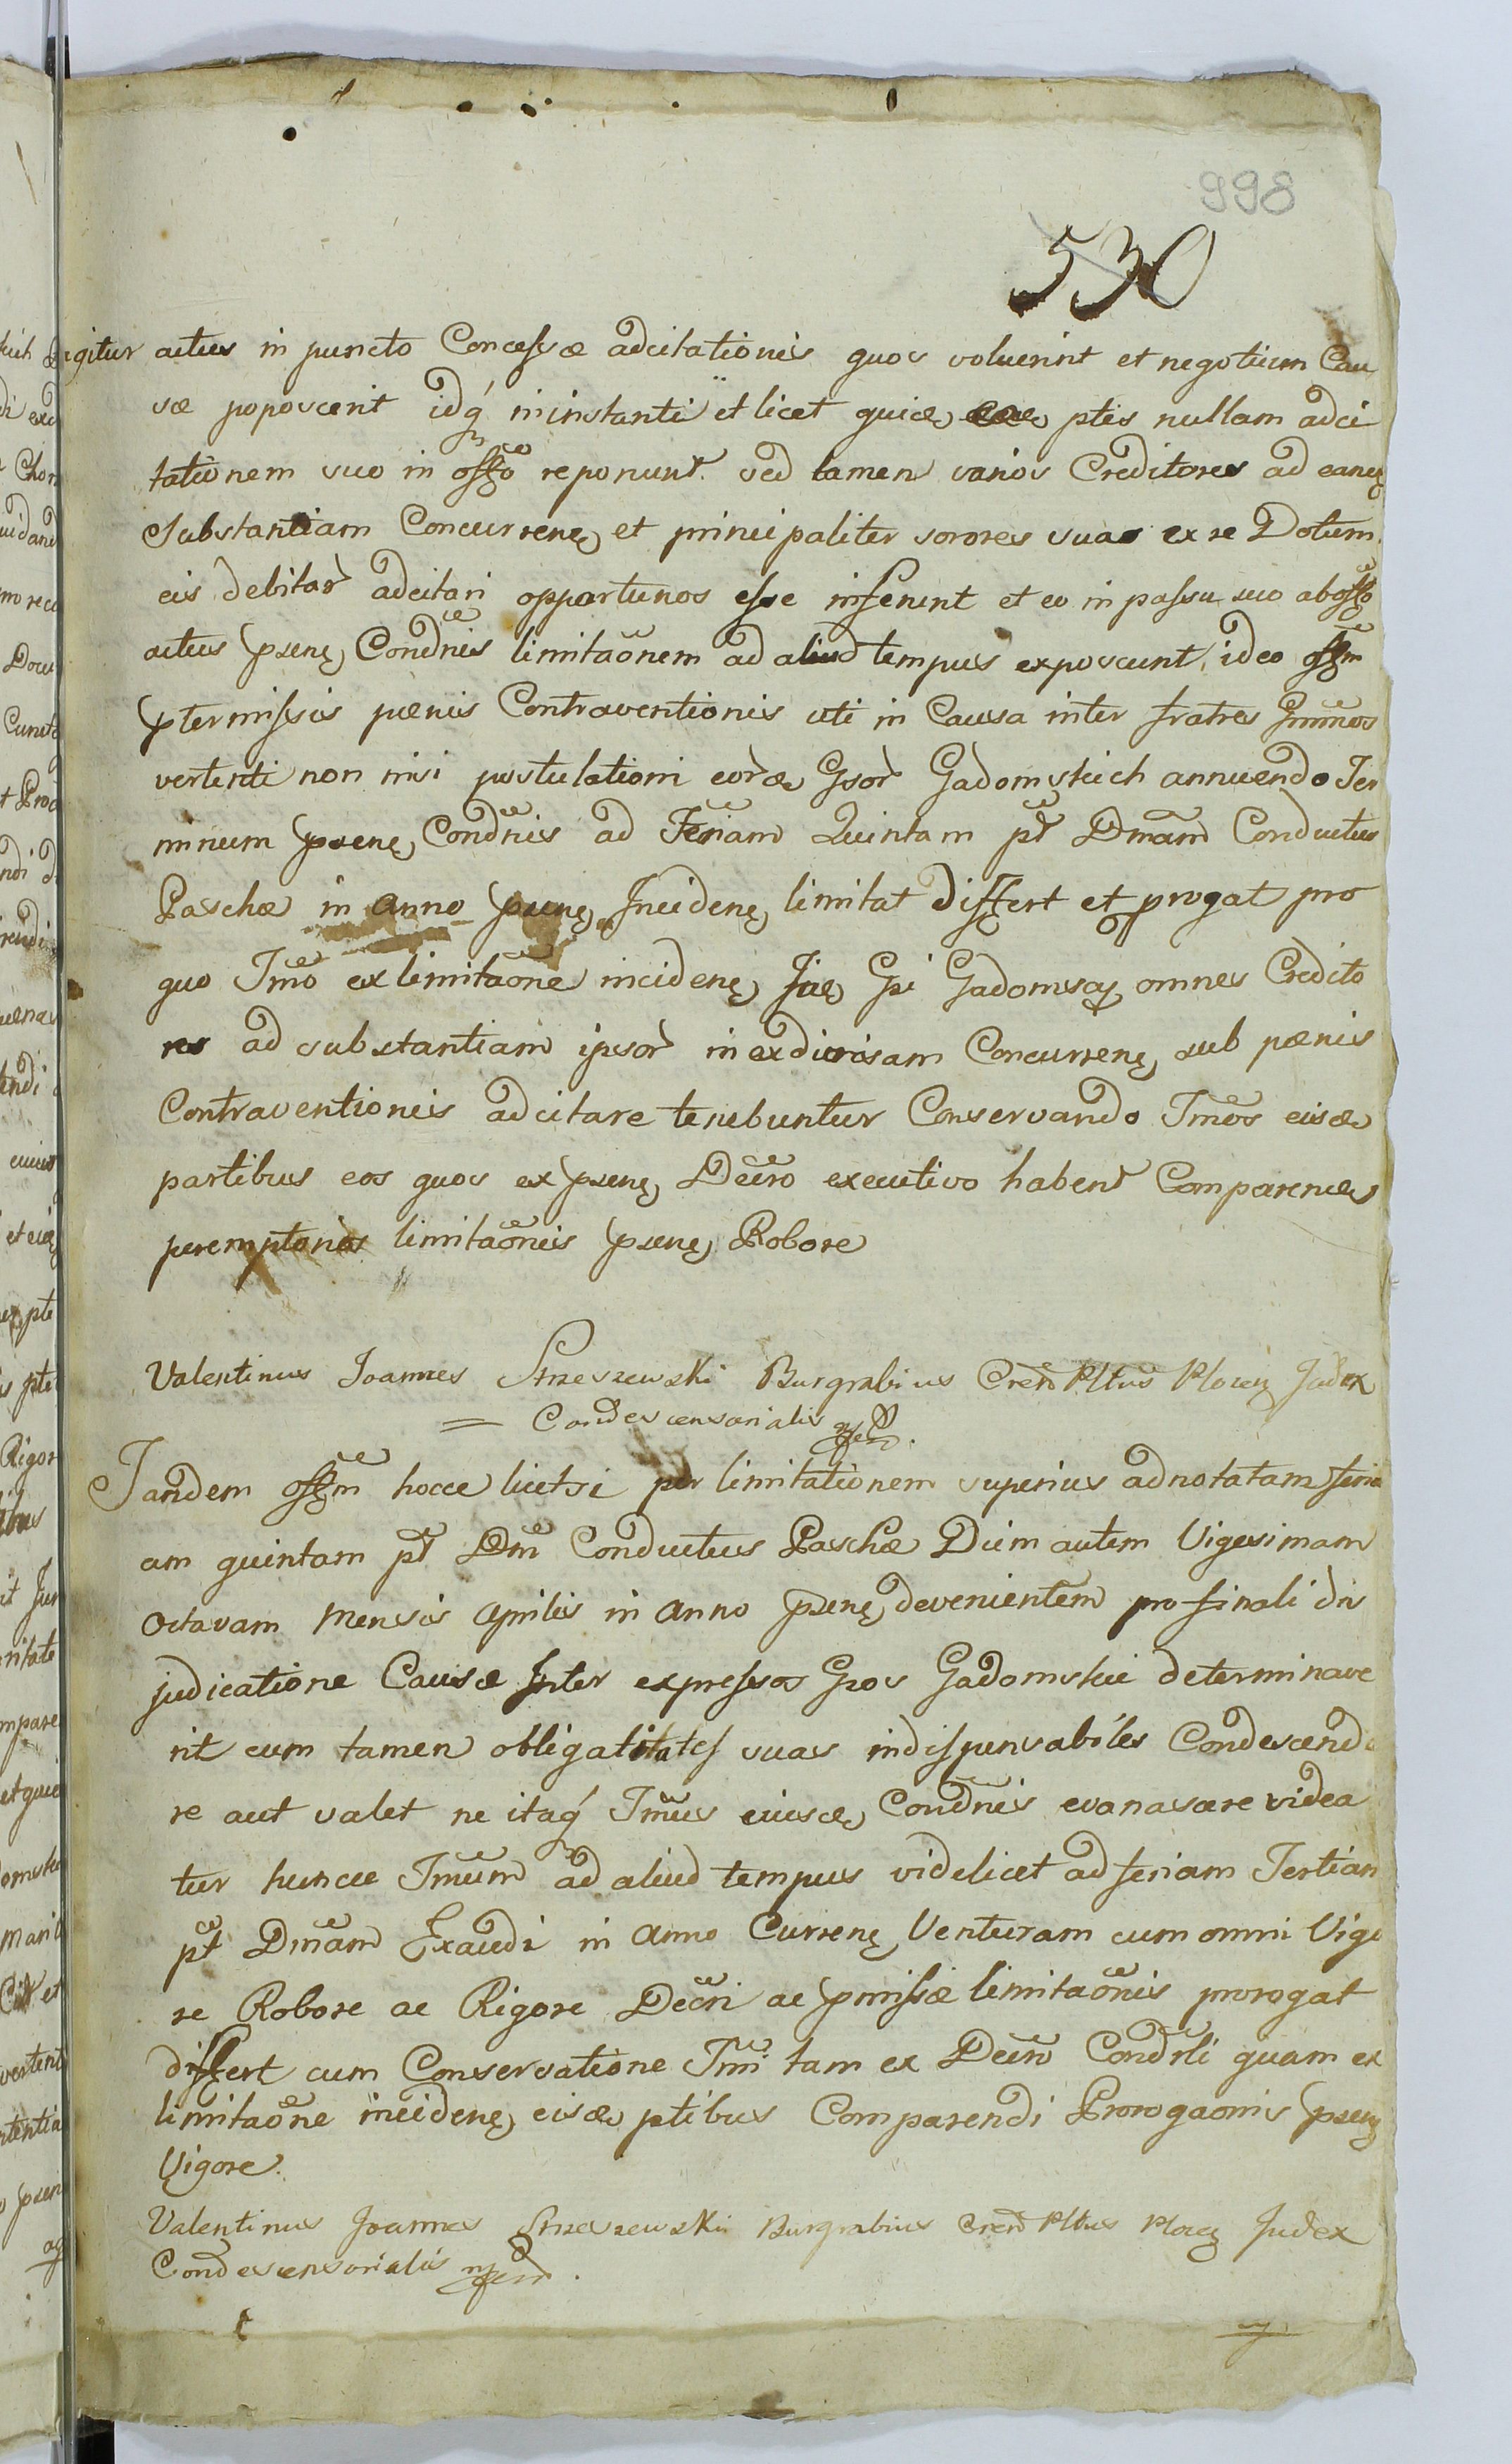 998
530
igitur actus in puncto Concessæ adcitationis quos voluerint et negotium Cau
sæ poposcerit idq́ in instanti et licet ptis nullam adci
tationem suo in offo reponunt sed tamen varios Creditores ad eandę
Substantiam Concurrenę et principaliter sorores suas ex re Dotum
eis debitar̃ adcitari opportunos esse inferunt et eo in passu suo ab offo
actus prsenę Condñis limitaõnem ad aliud tempus exposcunt, ideo offm
ptermissis pœnis Contraventionis uti in Causa inter fratres Gnnos
vertenti non nisi postulationi eorde Gsor̃ Gadomskich annuendo Ter
minum prsenę Condñis ad Feriam Quintam pt Dnãm Conductus
Paschæ in anno prsenę Incidenę limitat differt et progat pro
quo Tmõ ex limitaõne incidenę Gsi omnes Credito
res ad substantiam ipsor̃ in exdivisam Concurrenę sub pœnis
Contraventionis adcitare tenebuntur Conservando Tmõs eisde
partibus eos quos ex prsenę Decro executivo habent Comparenes
peremptorios limitaõnis prsenę Robore
Valentinus Joannes Strzeszewski Burgrabius Cren Pltus Plocen Judex
= Condescensorialis
Tandem offm hocce licet si per limitationem superius adnotatam feri
am quintam pt Dm̃ Conductus Paschæ Diem autem Vigesimam
Octavam Mensis Aprilis in anno prsenę devenientem pro finali dis
judicatione Causæ Inter expressos Gsos Gadomskie determinave
rit cum tamen obligatitates suas indispensabiles Condescende
re aut valet ne itaq́ Tmũs eiusde Condñis evanascere videa
tur huncce Tmũm ad aliud tempus videlicet ad feriam Tertiam
pt Dnãm Exaudi in Anno Currenę Venturam cum omni Vigo
re Robore ac Rigore Decri ac pmissæ limitaõnis prorogat
differt cum Conservatione Tmi tam ex Decro Condrli quam ex
limitaõne incidenę eisde ptibus Comparendi Prorogaonis prsenę
Vigore.
Valentinus Joannes Strzeszewski Burgrabius Cren Pltus Plocen Judex
Condescensorialis